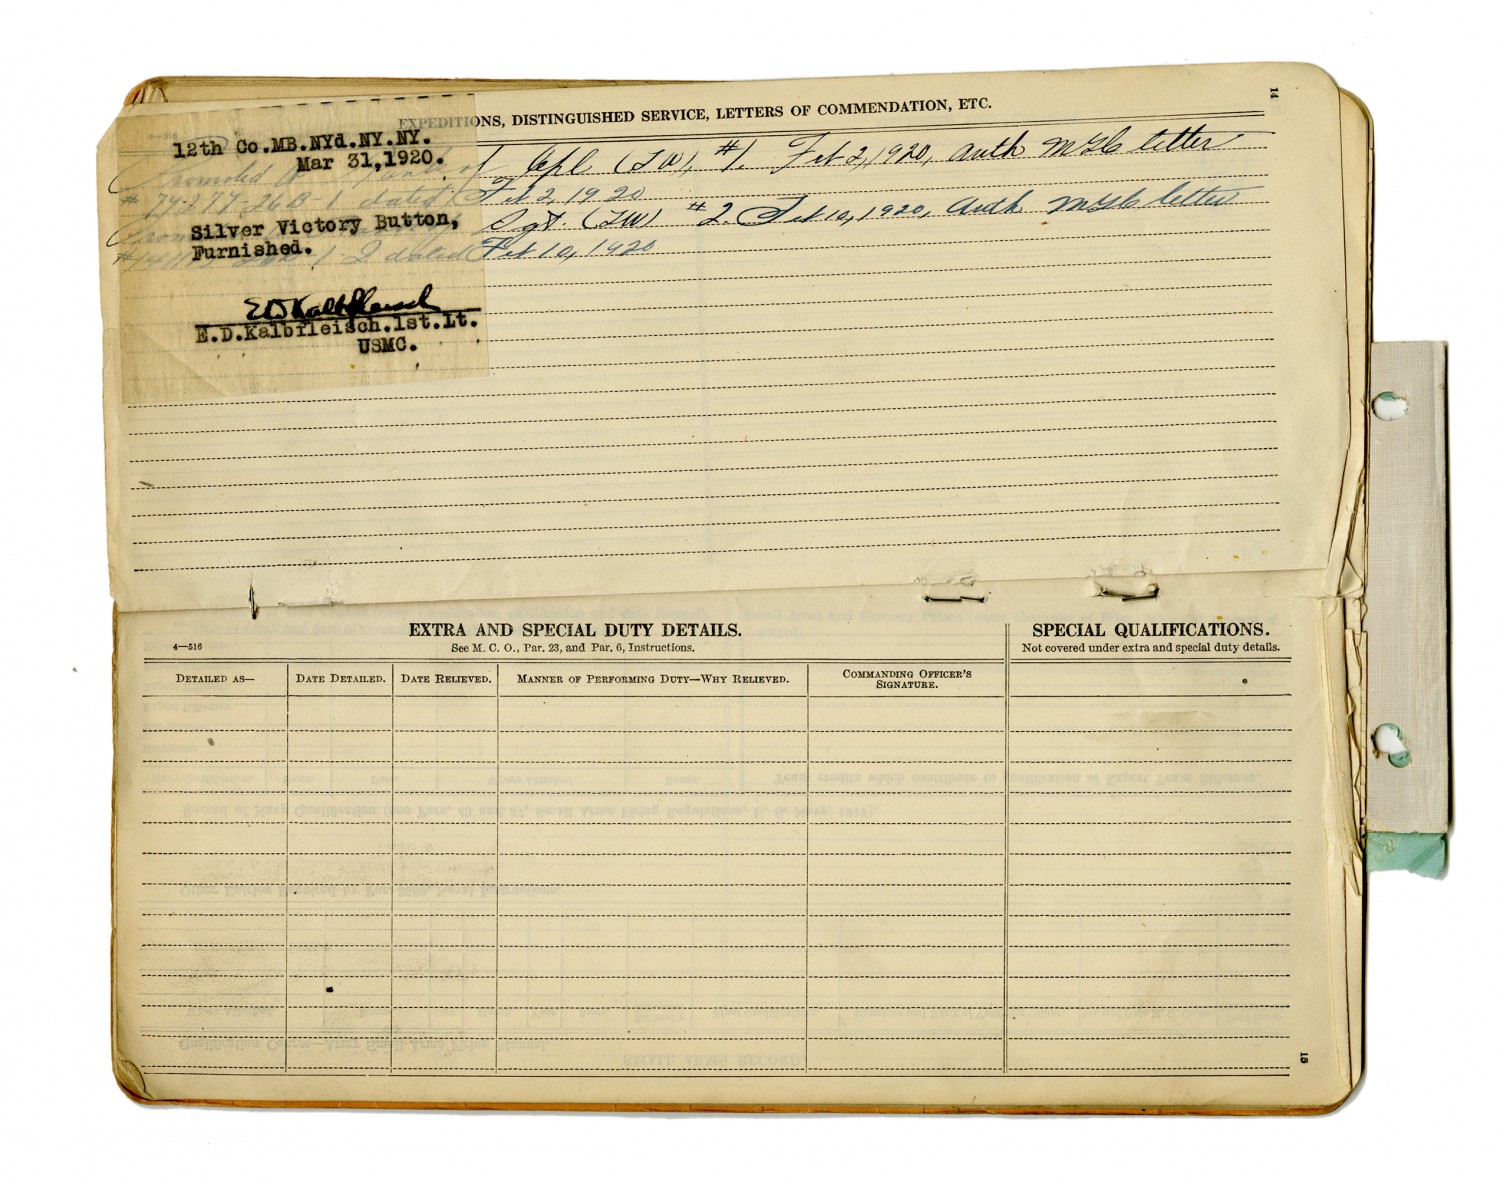 14
EXPEDITIONS, DISTINGUISHED SERVICE, LETTERS OF COMMENDATION, ETC.
12th Co.MB.NYd.NY.NY.
Mar 31,1920.
Silver Victory Button,
Furnished.
E.D.Kalbfleisch.1st.Lt.
USMC.
Promoted to rank of Cpl (TW), #1, Feb 2, 1920, auth MGC letter
dated Feb 2, 1920
Sgt. (TW) #2. Feb 10, 1920, auth MGC letter
dated Feb 10, 1920
EXTRA AND SPECIAL DUTY DETAILS.
4—516
See M. C. O., Par. 23, and Par. 6, Instructions.
SPECIAL QUALIFICATIONS.
Not covered under extra and special duty details.
DETAILED AS—
DATE DETAILED.
DATE RELIEVED.
MANNER OF PERFORMING DUTY—WHY RELIEVED.
COMMANDING OFFICER'S
SIGNATURE.
15